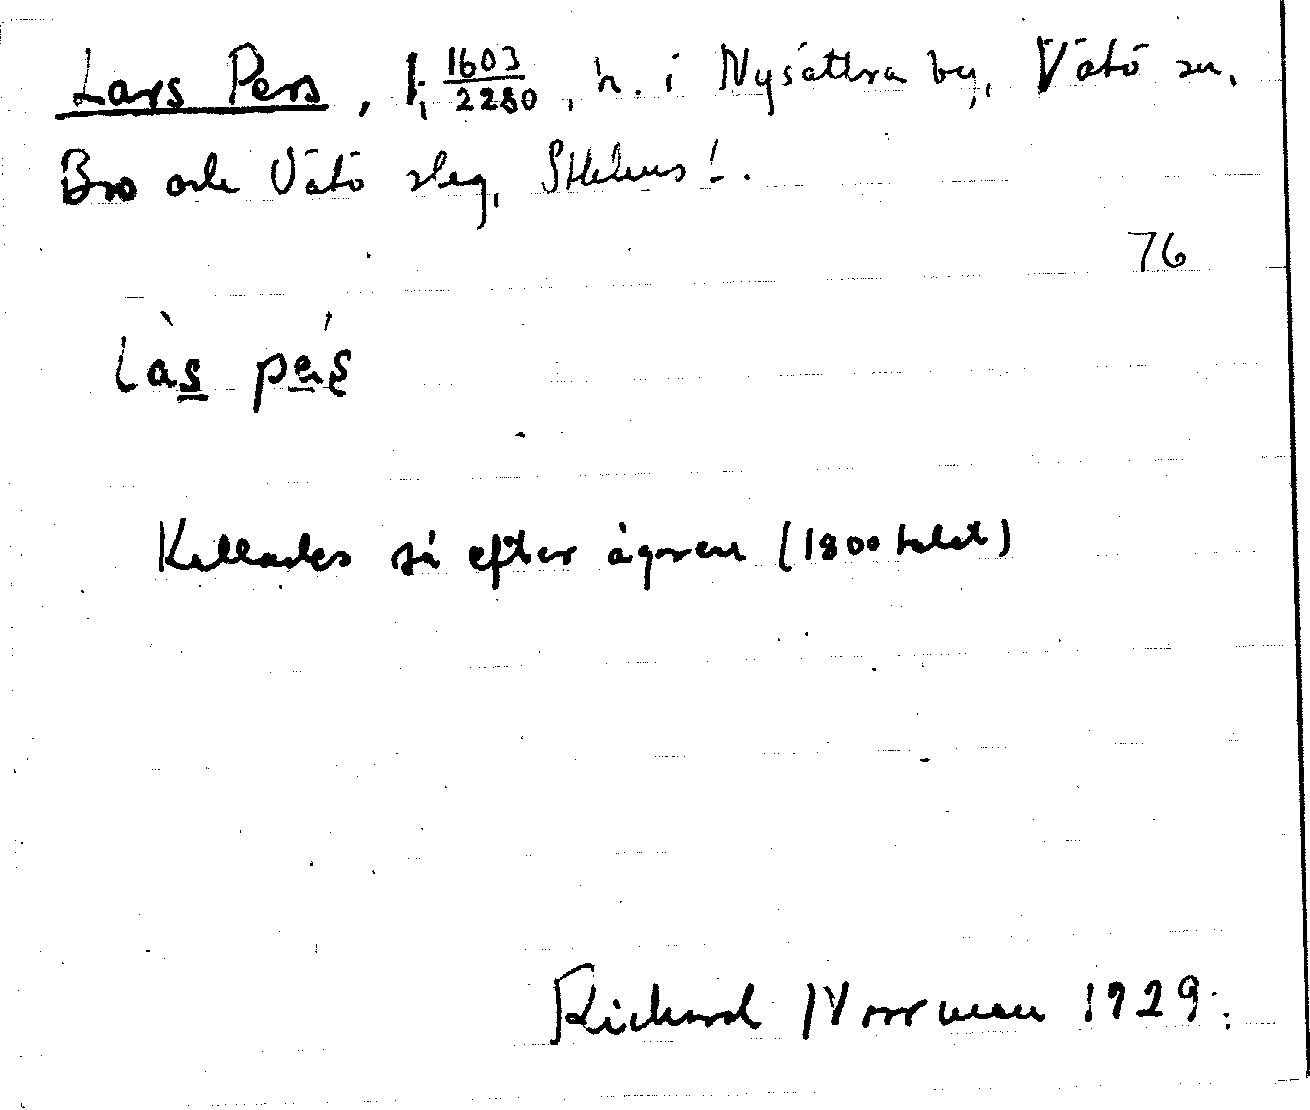 Lars Pers, f; 1603/2280, h. i Nysättra by, Vätö sn,
Bro och Vätö slag, Sthlms l.
76
làs pás
Kallades så efter ägaren (1800 talet)
Richard Norrman 1929.